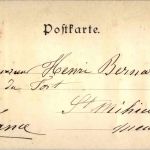 Postkarte.
Henri Berna
du Fort
St Mihie